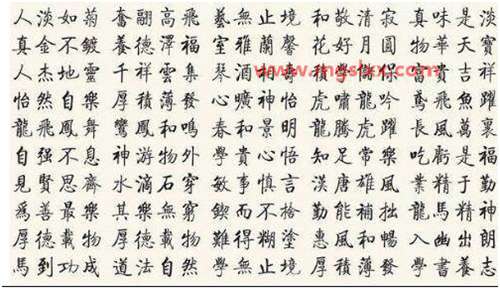 人淡如菊 奮翮高飛 藝無止境 和敬清寂 真味是淡
真金不鍍 養德澤福 室雅蘭馨 花好月圓 物華天寶
人杰地靈 千祥雲集 琴心酒 貴吉祥
www.mgslxx.com
怡然自樂 厚積薄發 心曠神怡 虎嘯龍吟 鳶飛魚躍
龍飛鳳舞 鸞鳳和鳴 春和景明 龍騰虎躍 長風萬裏
自强不息 神游物外 學貴心悟 知足常樂 吃虧是福
見賢思齊 水滴石穿 敏事慎言 漢唐雄風 業精于勤
爲善最樂 其樂無窮 鍥而不捨 勤能補拙 龍馬精神
厚德載物 厚德載物 難得糊塗 惠風和暢 入幽出朗
馬到功成 道法自然 學無止境 厚積薄發 學書養志